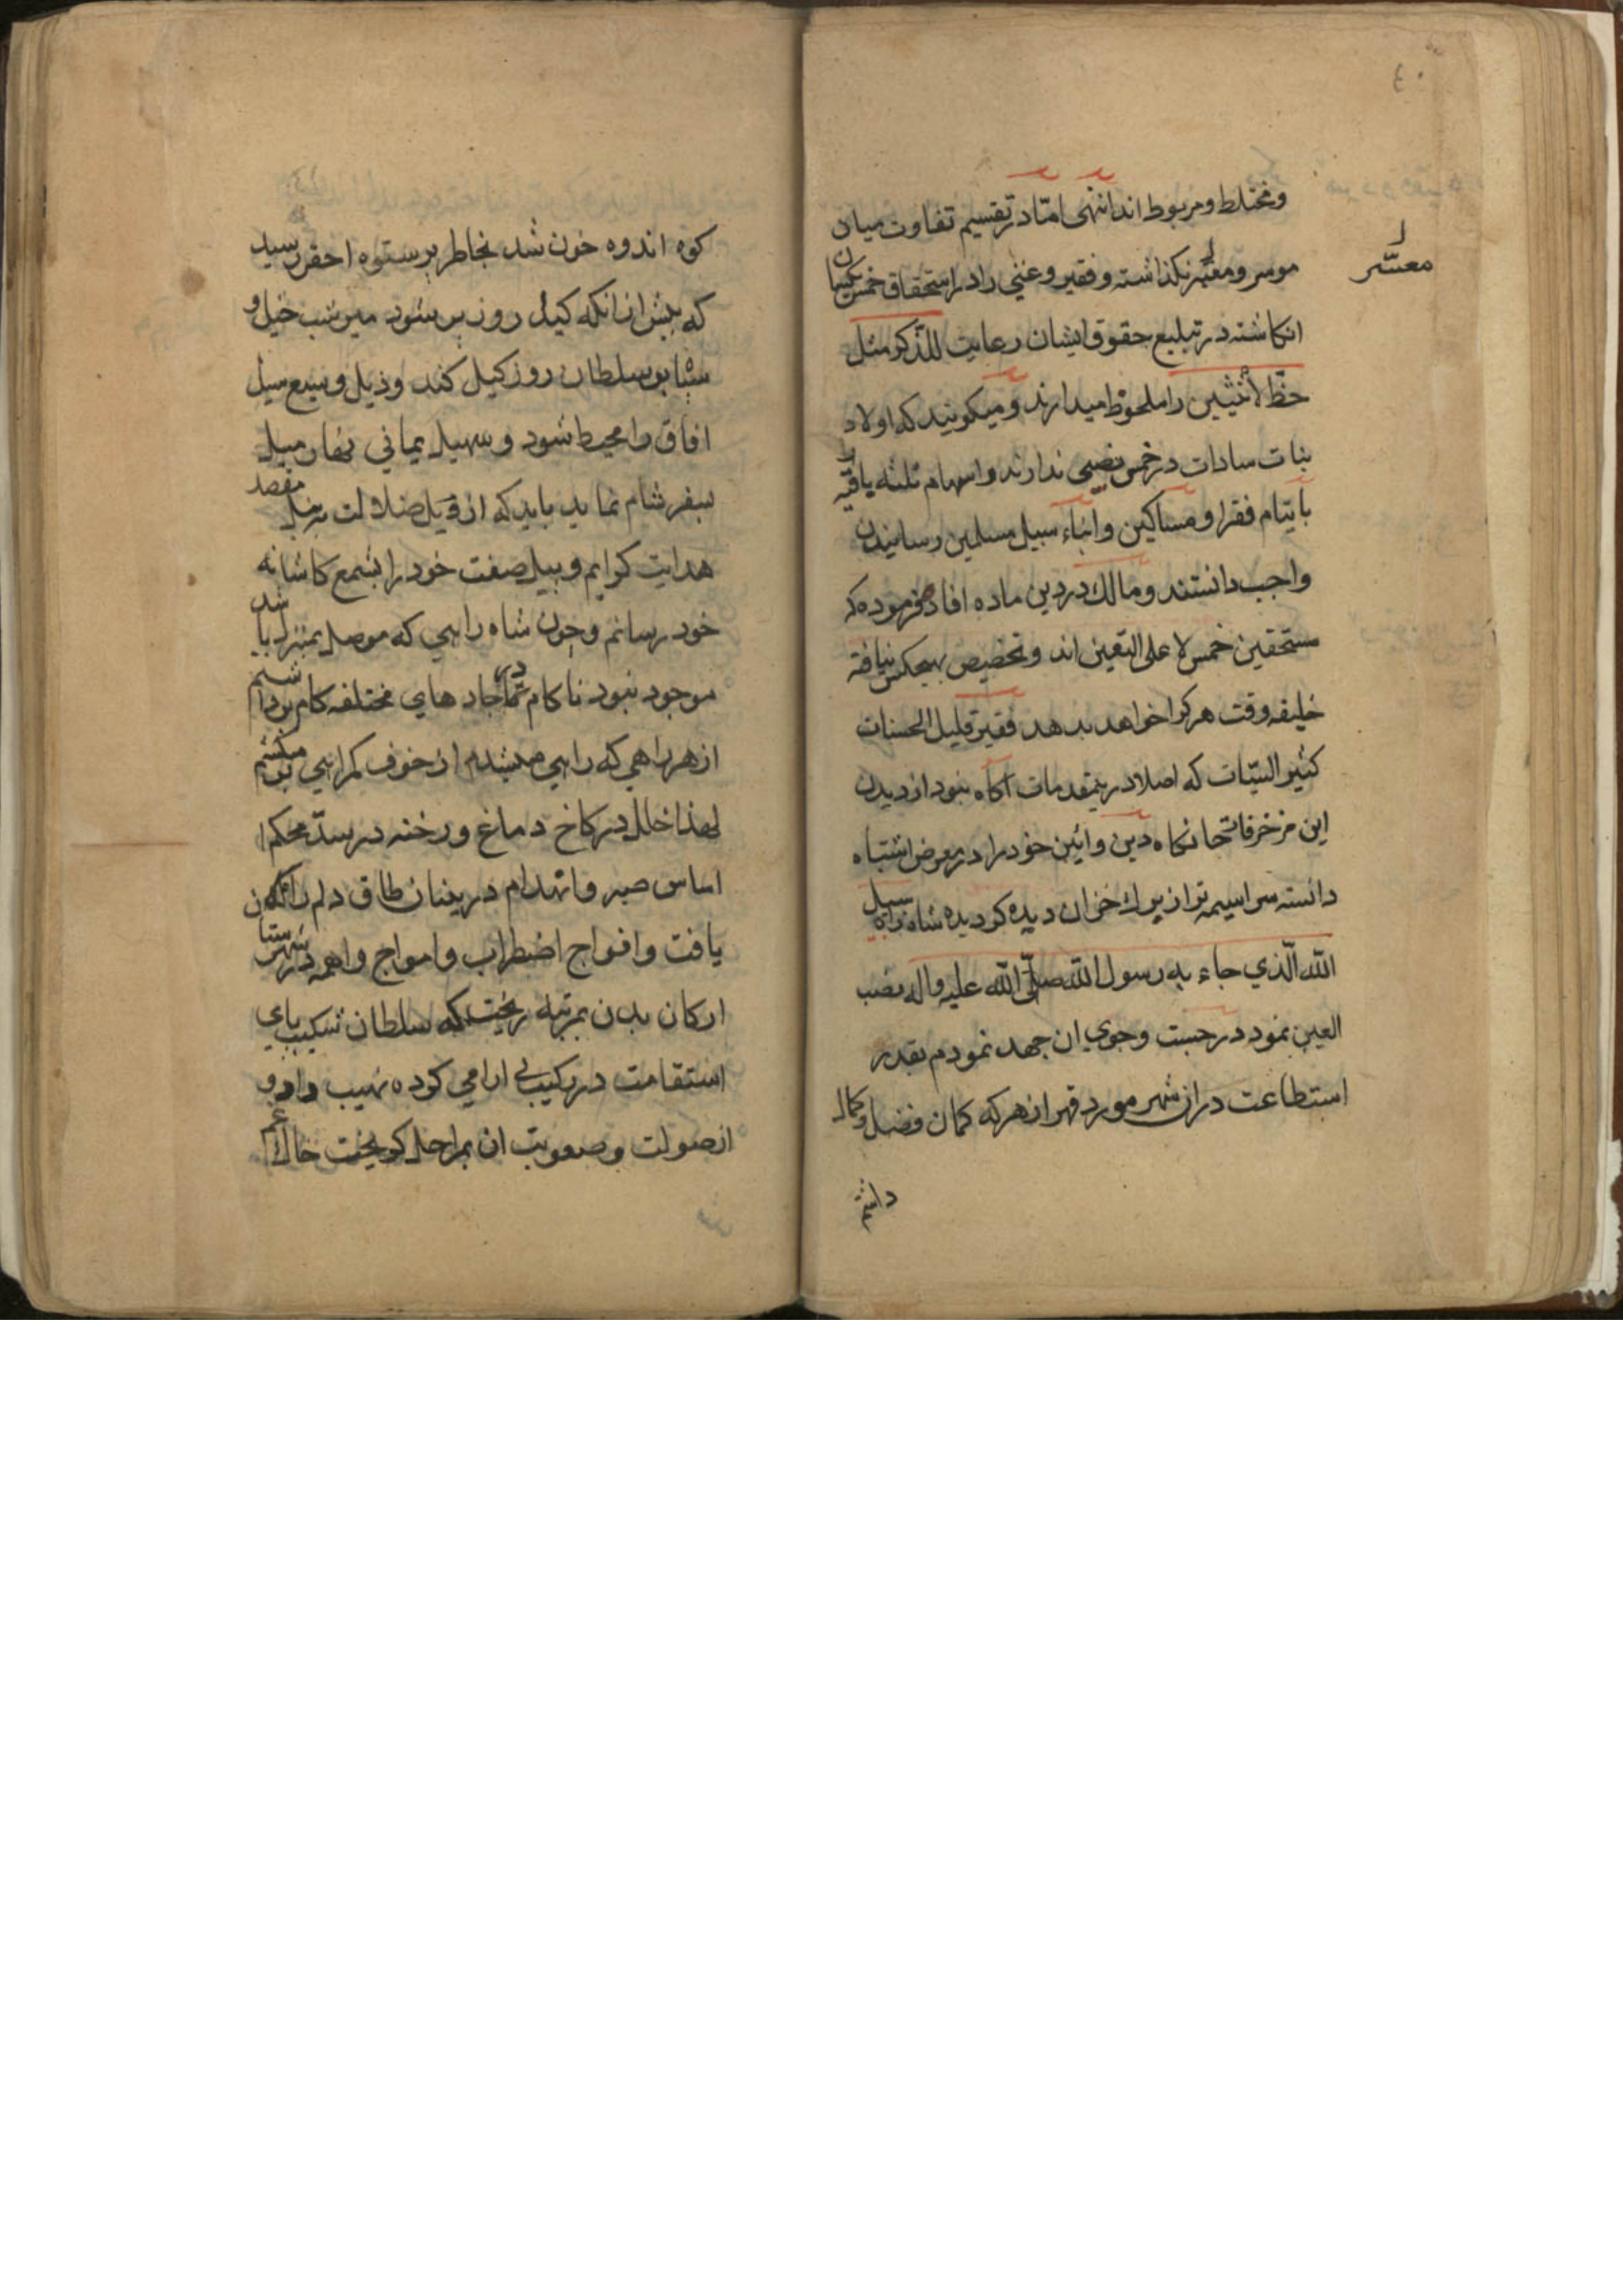 ٤٠
ومختلط ومربوط اند انتهی امّا در تقسیم تفاوت میان
موسر ومعسّر نکذاشته وفقیر وغنی را در استحقاق خمس یکسان
معسّر
انکاشته در تبلیغ حقوق ایشان رعایت للذّکر مثل
حظّ الأنثیین را ملحوظ میدارند ومیکویند که اولاد
بنات سادات در خمس نصیبی ندارند واسهام ثلثه یاقیه را
بایتام فقرا ومساکین وابناء سبیل مسلمین رسانیدن
واجب دانستند ومالك در دین ماده افاده فرموده که
مستحقین خمس لا علی التعین اند وتخصیص بهیچکس نیافته
خلیفه وقت هر کرا خواهد بدهد فقیر قلیل الحسنات
کثیر السیّات که اصلا در ینمقدمات آکاه نبود از دیدن
این مزخرفات جانکاه دین وائین خود را در معرض اشتباه
دانسته سراسیمه تر از برك خزان دیده کردیده شاه راه سبیل
الله الّذی جاء به رسول الله صلّی الله علیه واله نصب
العین نمود در جست وجوی ان جهد نمودم بقدر
استطاعت در ان شهر مورد قهر از هر که کمان فضل وکمال
داشتم
کوه اندوه خون شد بخاطر پر ستوه احقر رسید
که پیش از انکه کیل روز پر شود میر شب خیل و
سلطان روز کیل کند وذیل وسیع سیل
افاق را محیط شود وسهیل یمانی نهان میل
سفر شام نماید باید که از ضلالت بمنزل مقصد
هدایت کرایم و صفت خود را بشمع کاشانه
خود رسانم وچون شاه راهی که موصل بمنزل باشد
موجود نبود ناکام در تمام جاده های مختلفه کام بر داشتم
از هر راهی که راهی میشدم از خوف کمراهی بر میکشتم
لهذا خلل در کاخ دماغ ورخنه در سدّ محکم
اساس صبر وانهدام در بنیان طاق دلم راه
یافت وافواج اضطراب وامواج واهمه در شهرستان
ارکان بدن بمرتبه ریخت که سلطان شکیب پای
استقامت در رکیب بی ارامی کرده نهیب داد و
از صولت وصعوبت ان بمراحل کریخت خاك غم